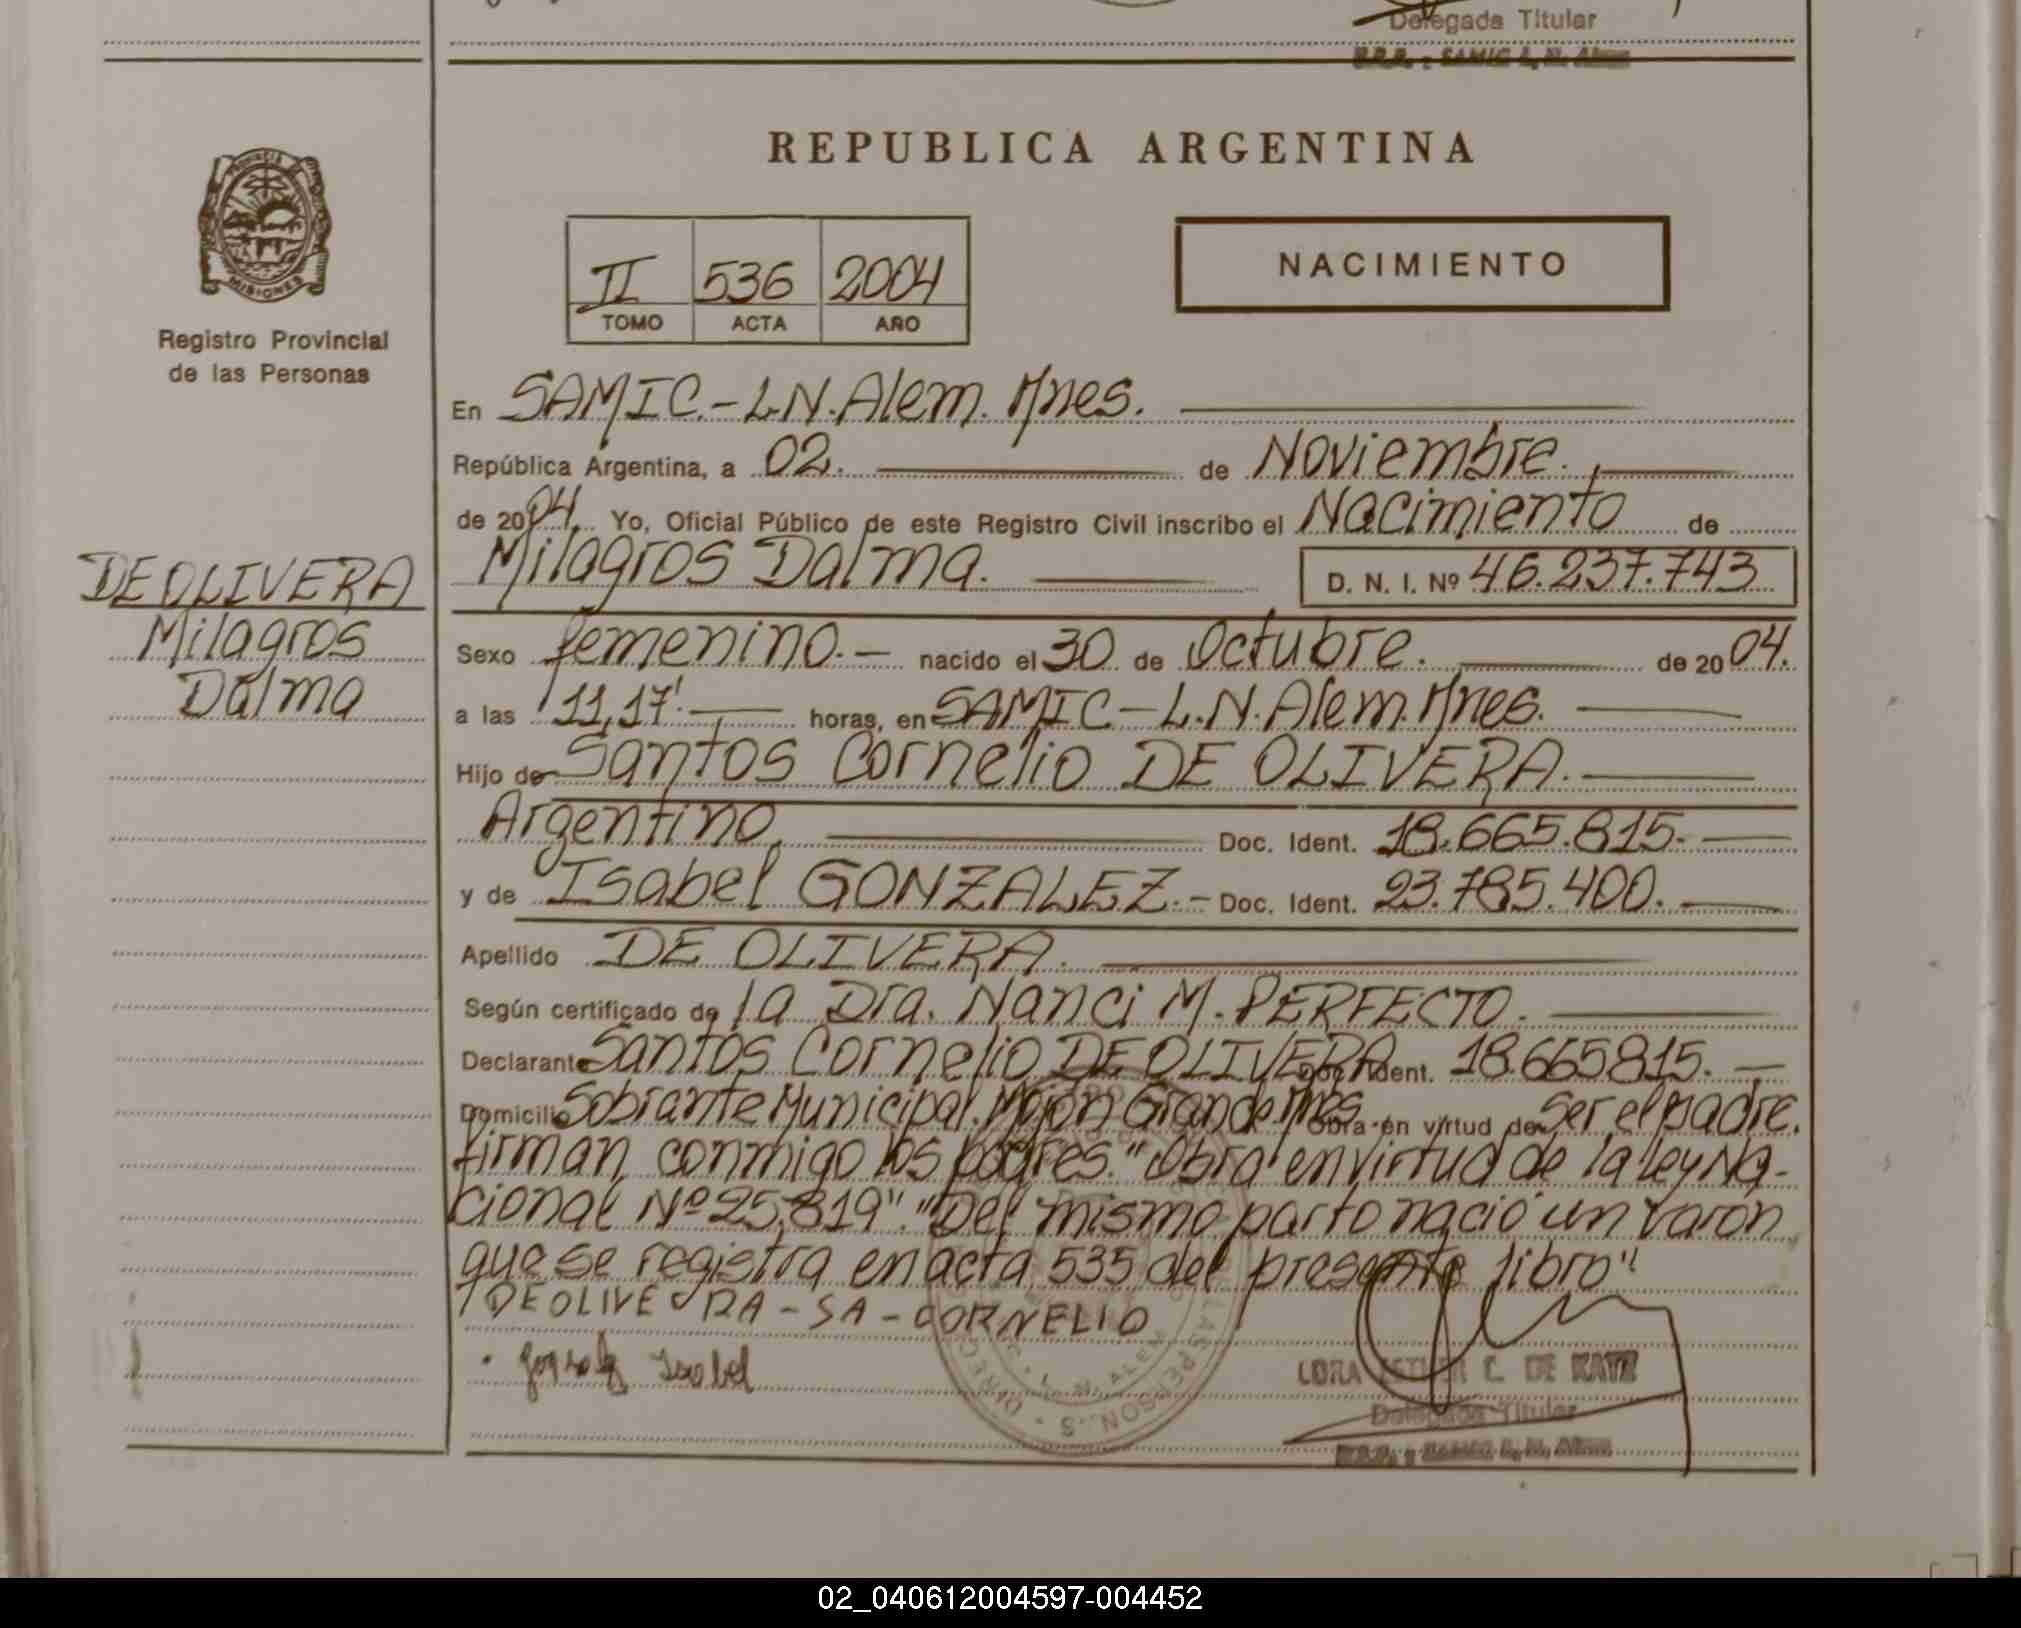 Delegada Titular
R.P.P. - SAMIC L. N. Alem
REPUBLICA ARGENTINA
PROVINCIA DE
MISIONES
Registro Provincial
de las Personas
II 536 2004
TOMO ACTA AÑO
NACIMIENTO
En SAMIC.-L.N.Alem. Mnes.
República Argentina, a 02. de Noviembre.
de 2004. Yo, Oficial Público de este Registro Civil inscribo el Nacimiento de
Milagros Dalma. D. N. I. Nº 46.237.743
DE OLIVERA
Milagros
Dalma
Sexo femenino.- nacido el 30 de Octubre. de 2004.
a las 11,17' horas, en SAMIC-L.N.Alem.Mnes.
Hijo de Santos Cornelio DE OLIVERA.
Argentino. Doc. Ident. 18.665.815.
y de Isabel GONZALEZ.- Doc. Ident. 23.785.400.
Apellido DE OLIVERA.
Según certificado de la Dra. Nanci M. PERFECTO.
Declarante Santos Cornelio DE OLIVERA Doc. Ident. 18.665815.
Domicilio Sobrante Municipal. Mojón Grande Mnes. Obra en virtud de Ser el padre.
firman conmigo los padres. "Obra en virtud de la ley Na-
cional Nº 25.819". "Del mismo parto nació un varon
que se registra en acta 535 del presente libro"
DE OLIVERA - SA - CORNELIO
Gonzalez Isabel
C. DE KATZ
Delegada Titular
R.P.P. - SAMIC L. N. Alem
02_040612004597-004452